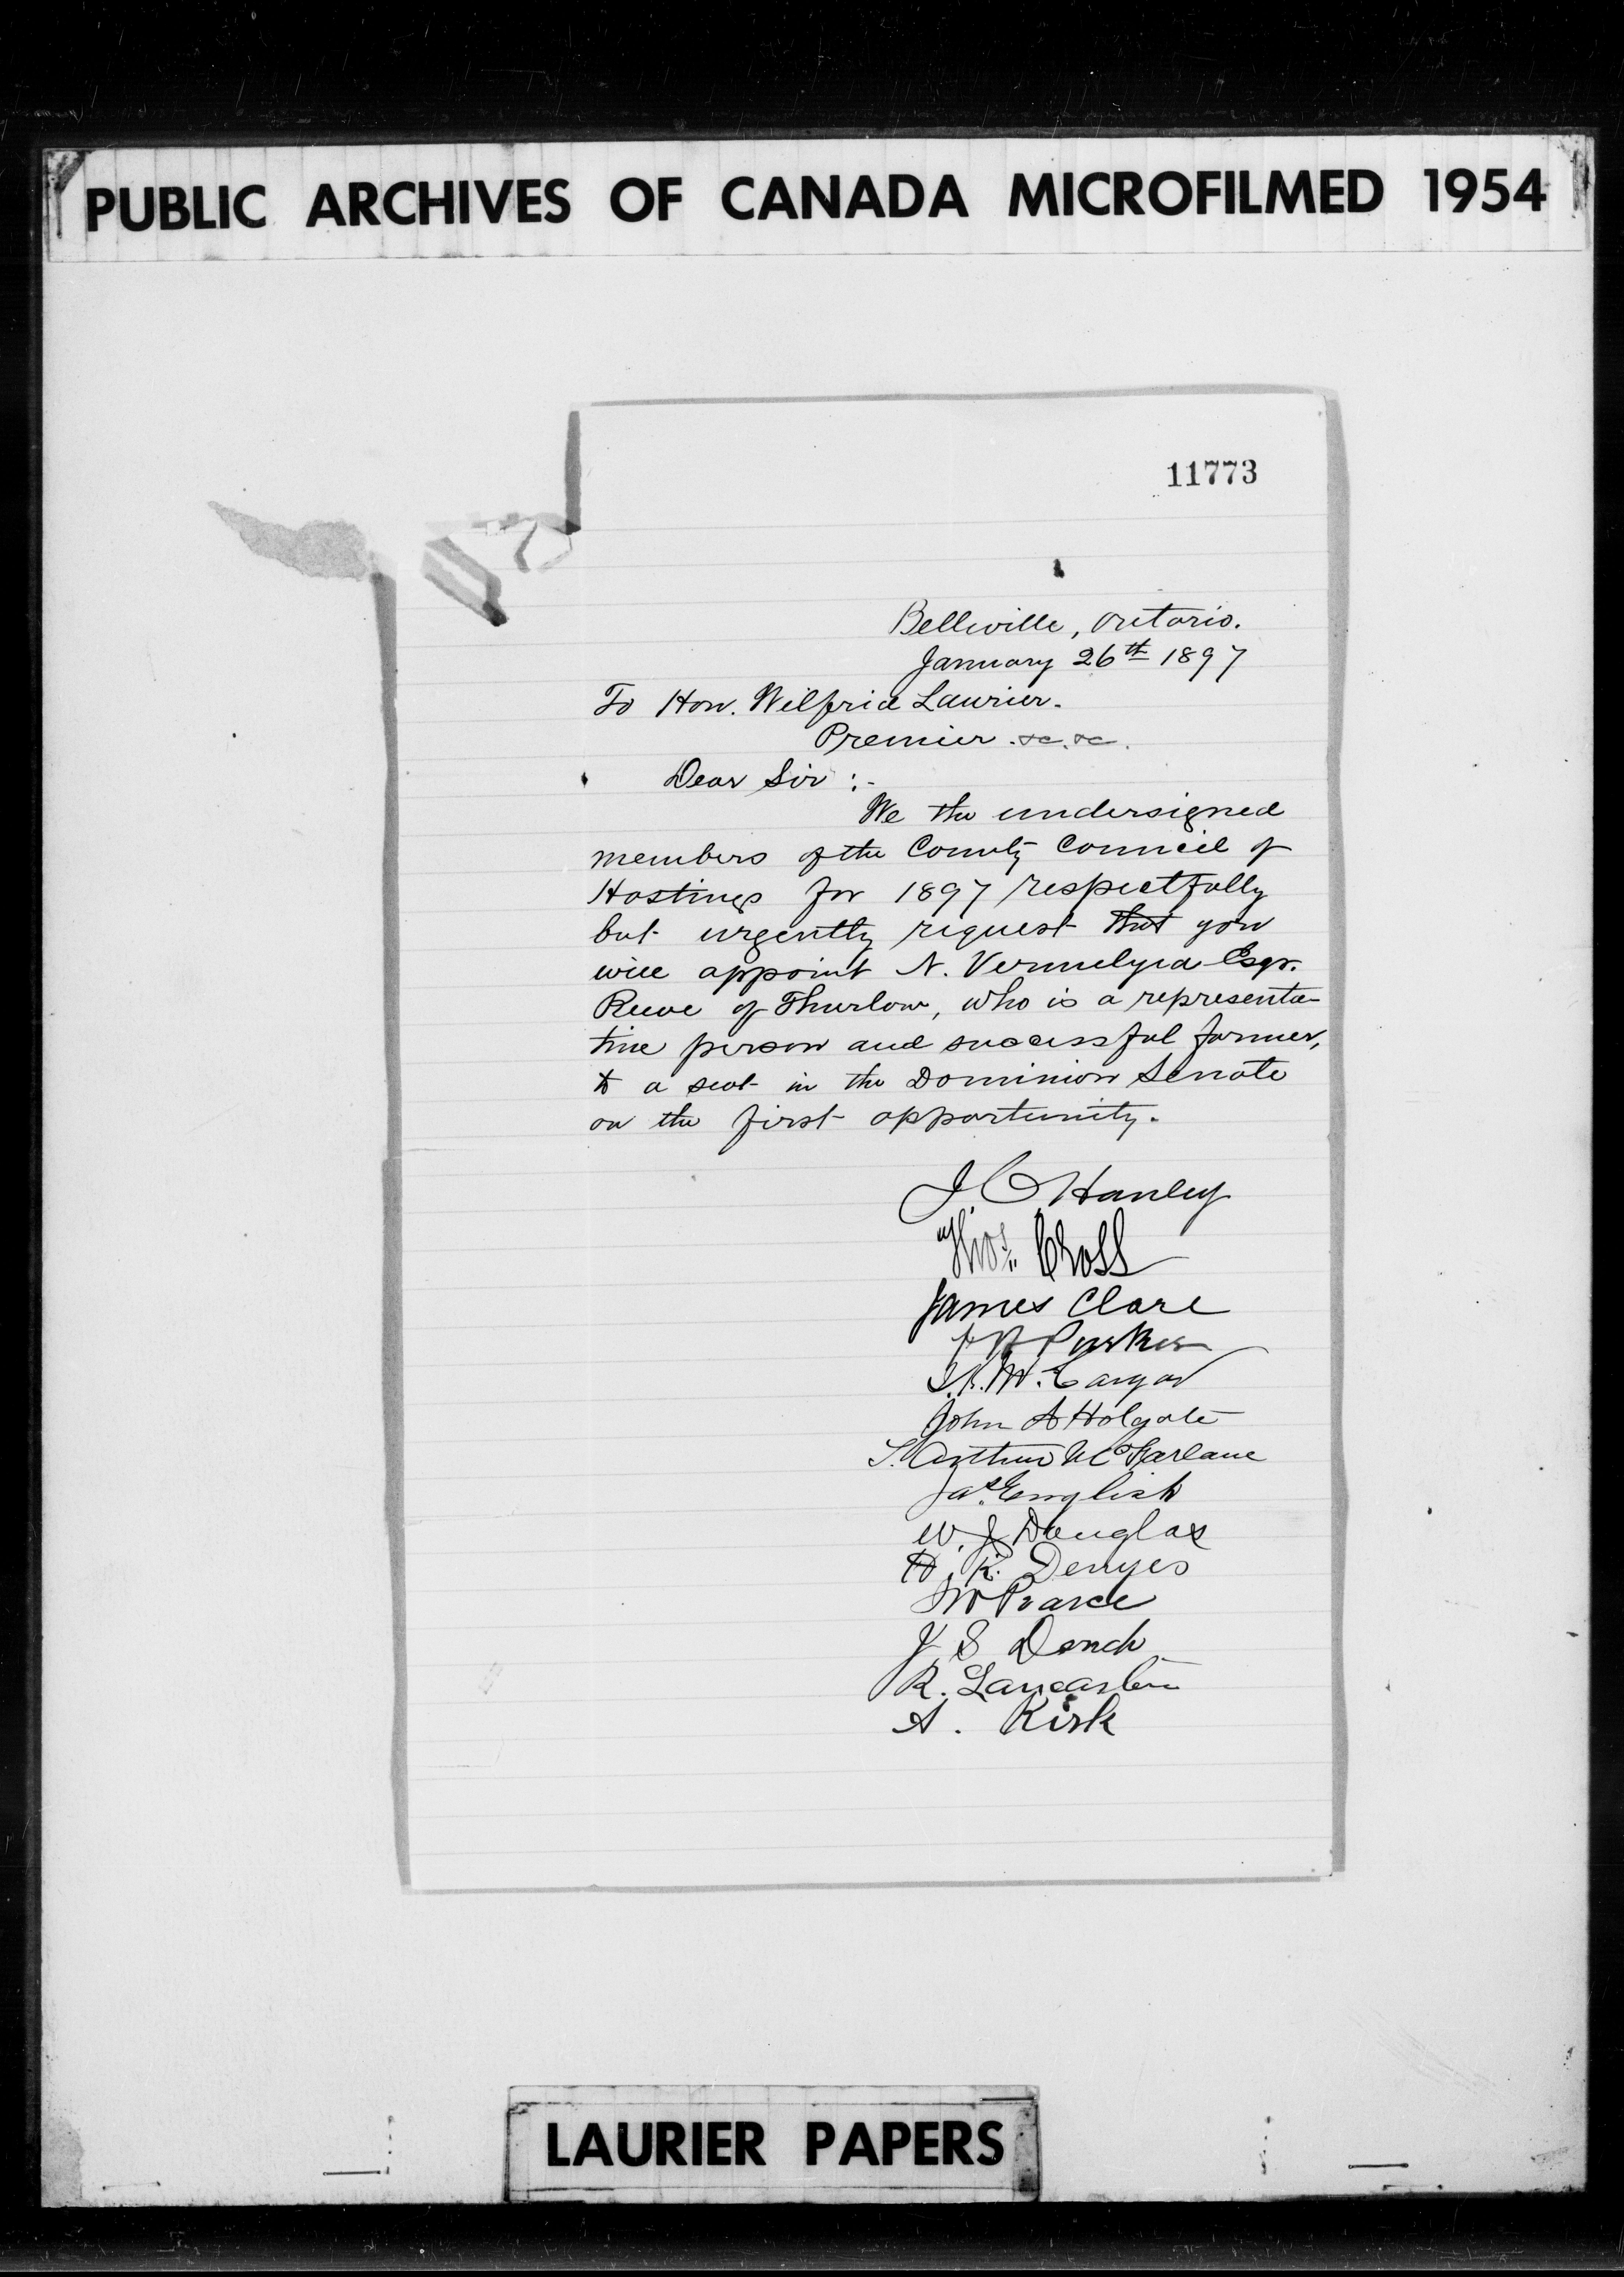 PUBLIC ARCHIVES OF CANADA MICROFILMED 1954
11773
Belleville, Ontario.
January 26th 1897
To Hon. Wilfrid Laurier.
Premier &c. &c.
Dear Sir :-
We the undersigned
members of the County Council of
Hastings for 1897 respectfully
but urgently request that you
will appoint N. Vermilyea Esqr.
Reeve of Thurlow, who is a representa-
tive person and successful farmer,
to a seat in the Dominion Senate
on the first opportunity.
J. C. Hanley
Thos. Cross
James Clare
John A Holgate
S. Arthur McFarlane
Jas. English
W. J. Douglas
H. K. Denyes
W Pearce
J S Dench
R. Lancaster
A. Kirk
LAURIER PAPERS